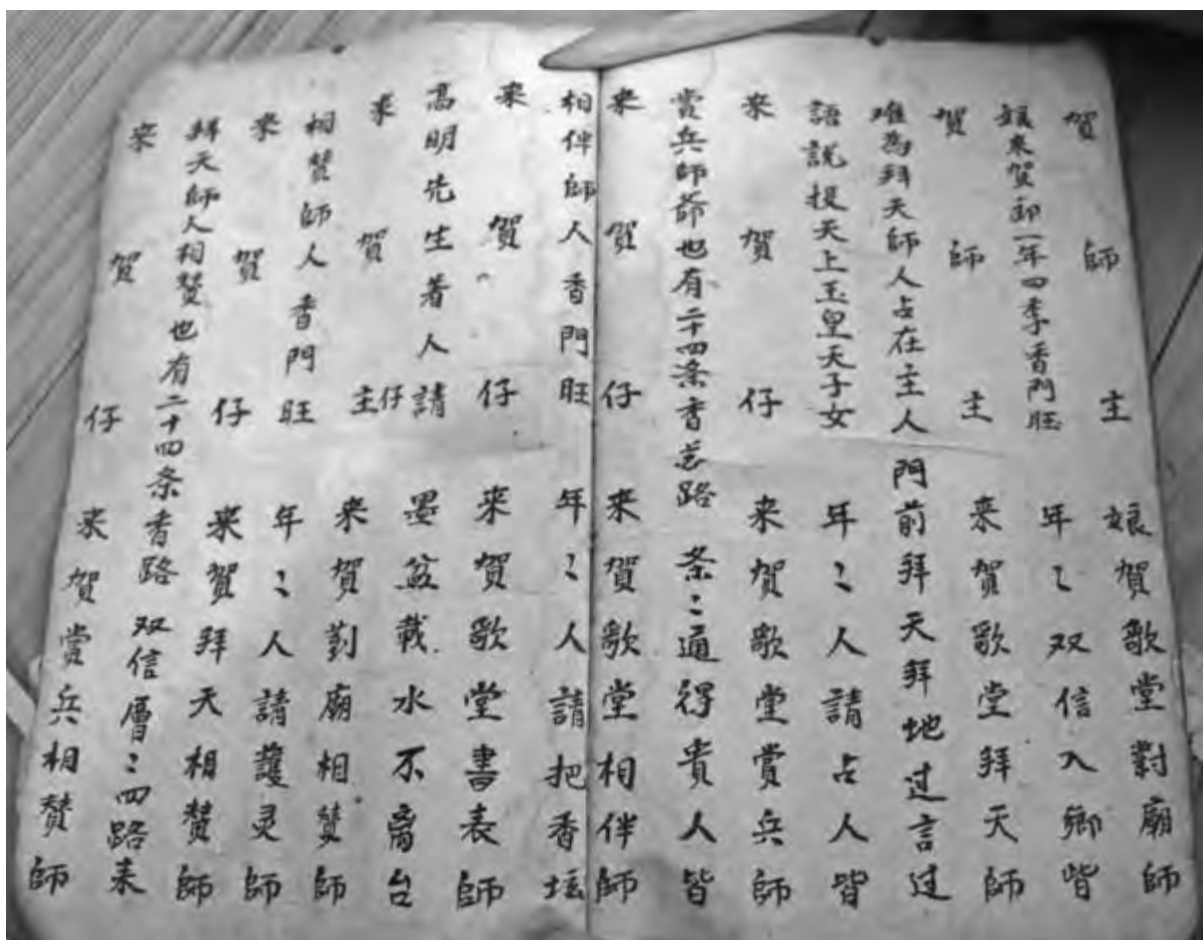 賀師主 娘賀歌堂對廟師
娘来賀郎一年四季香門旺 年〻双信入鄉皆
賀師主 来賀歌堂拜天師
难為拜天師人占在主人門前拜天拜地过言过
語説投天上玉皇天子女 年〻人請占人皆
来賀仔 来賀歌堂賞兵師
賞兵師爺也有二十四条香路 条〻通得貴人皆
来賀仔 来賀歌堂相伴師
相伴師人香門旺 年〻人請把香坛
来賀仔 来賀歌堂書表師
高明先生着人請 墨盆載水不离台
来賀仔主 来賀對廟相賛師
相賛師人香門旺 年〻人請護灵師
来賀仔 来賀拜天相賛師
拜天師人相賛也有二十四条香路 双信層〻四路来
来賀仔 来賀賞兵相賛師